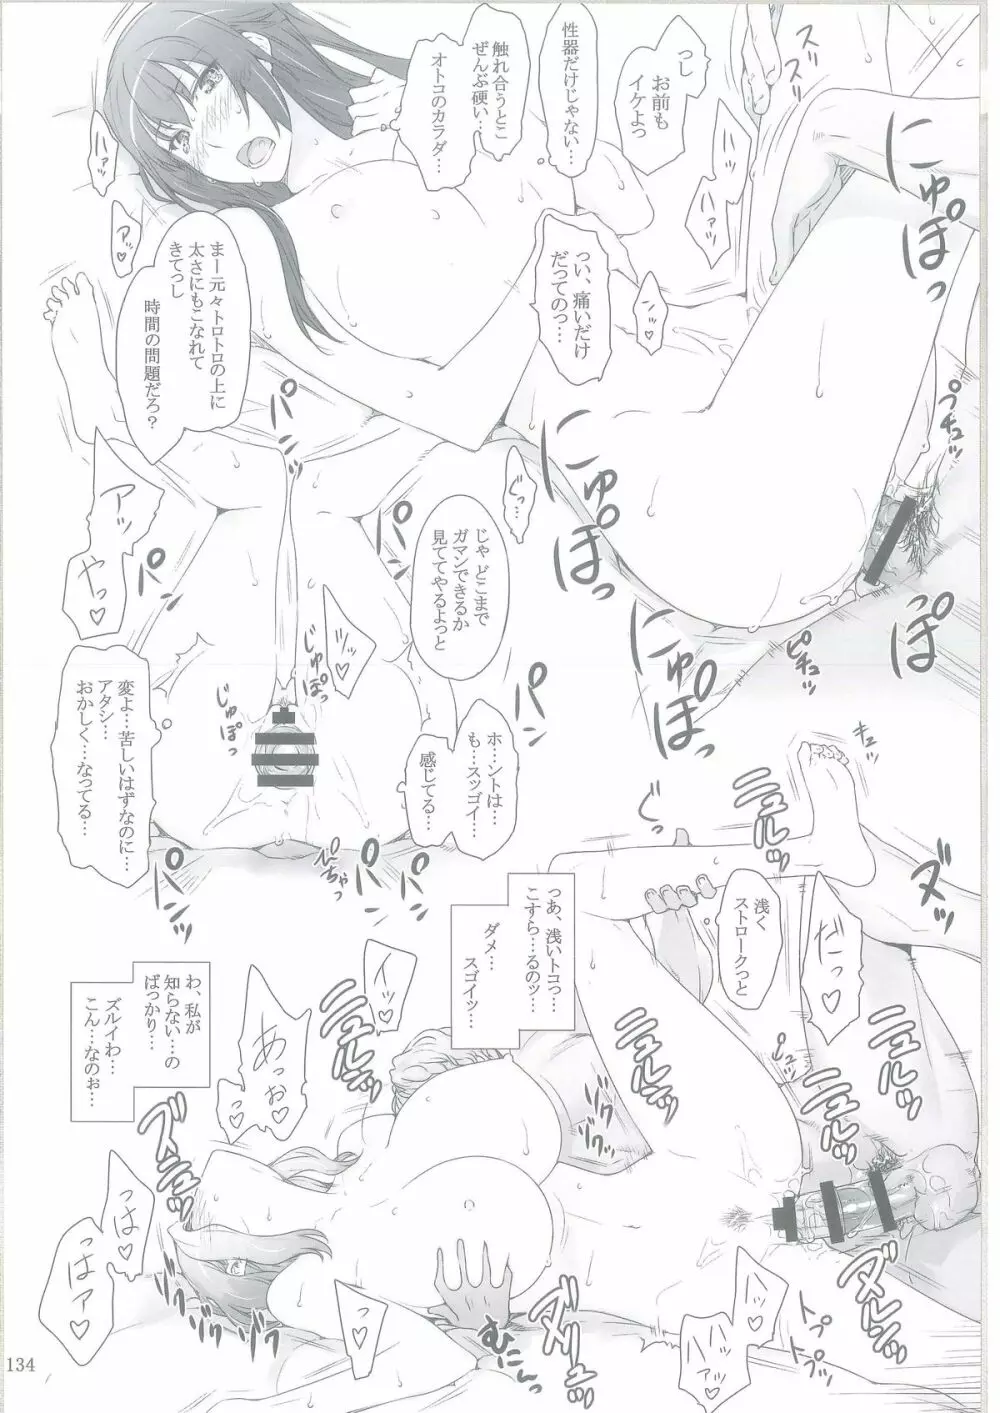 っし
お前も
イケよっ
性器だけじゃない…
触れ合うとこ
ぜんぶ硬い…
オトコのカラダ…
っい、痛いだけ
だってのっ…
まー元々トロトロの上に
太さにもこなれて
きてっし
時間の問題だろ？
ハァッ
アッ♡
ハアッ
ンッ♡
スリ
スリッ
にゅぽ
にゅぽ
にゅぽ
プチュッ
ピチュッ
ぐっ…
じゃ どこまで
ガマンできるか
見ててやるよっと
アッ
やっ♡
パン
パン
パン
パン
パン
パン
じゅぽっ
じゅぽっ
変よ…苦しいはずなのに…
アタシ…
おかしく…なってる…
ホ…ントは…
も…スッゴイ…
感じてる…
ぴちゃっ
浅く
ストロークっと
っあ、浅いトコっ…
こすら…るのッ…
ダメ…
スゴイッ…
わ、私が
知らない…の
ばっかり…
ズルイわ…
こん…なのぉ…
キュッ
ぐっ
ニュルッ
ヌッ
だっ♡
イッ♡
あっお♡
ニュルッ
ニュルッ
ニュルッ
ズニュッ
ゾクゾクッ
ゾクゾクッ
っはっ♡
っはァ♡
っ♡
むにん
ダニュッ
ダヌルッ
トプ
トプ
ハッ
ハアッ♡
134